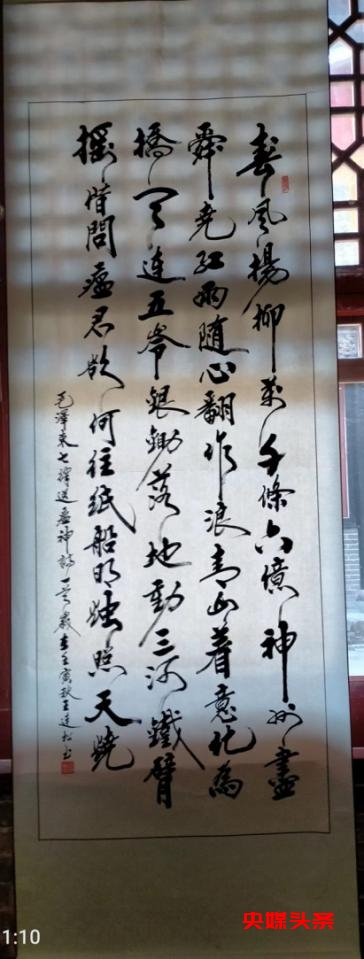 春風楊柳萬千條六億神州盡
舜堯紅雨隨心翻作浪青山着意化為
橋天連五岺銀鋤落地動三河鐵臂
摇借問瘟君欲何往紙船明燭照天燒
毛澤東七律送瘟神詩一首歲在壬寅秋王廷松书
央媒头条
1:10